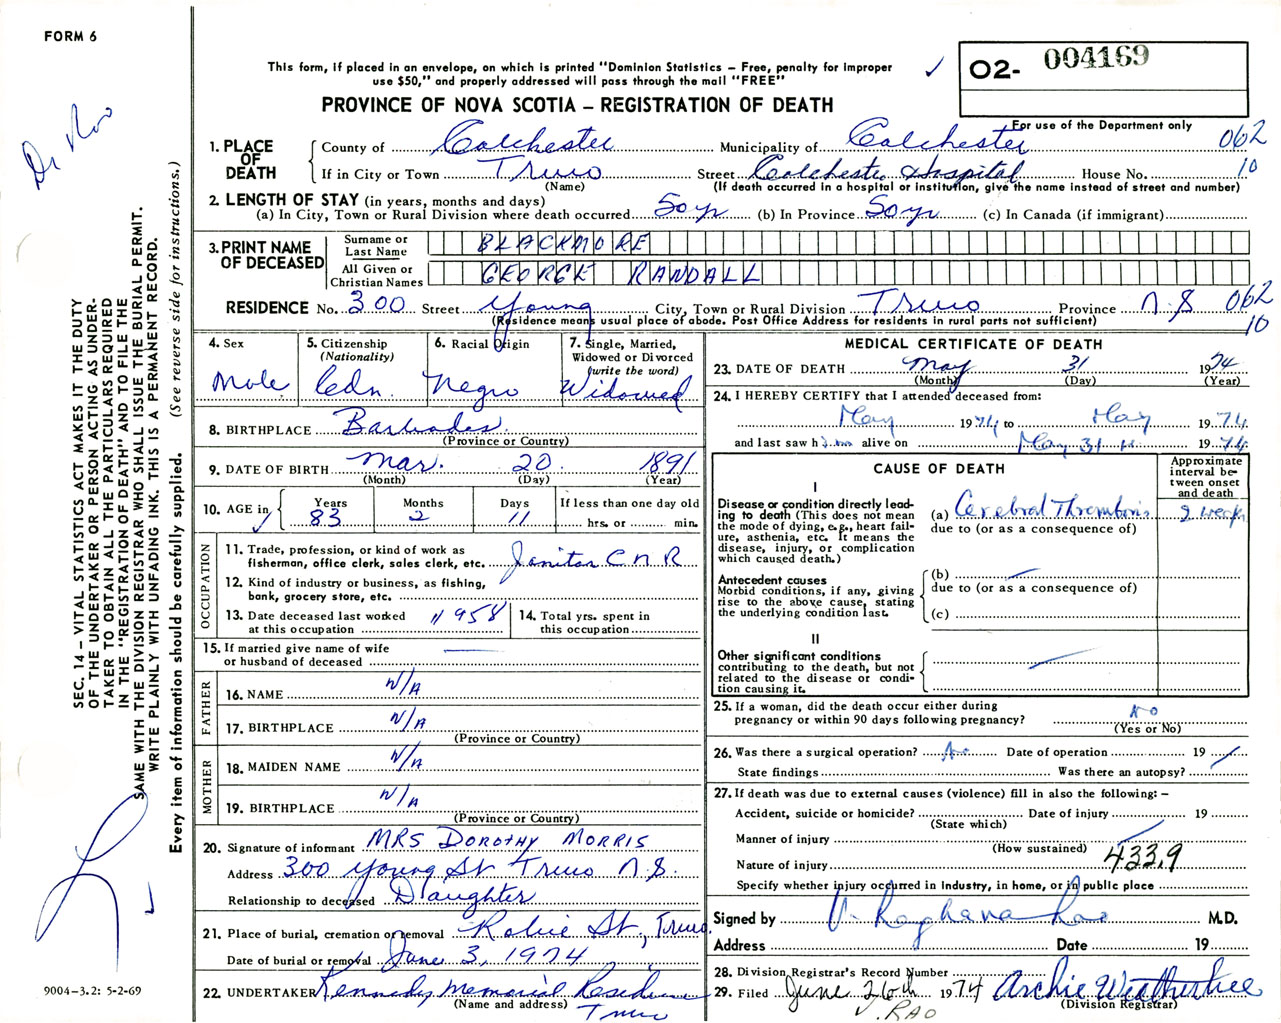 FORM 6
This form, if placed in an envelope, on which is printed "Dominion Statistics – Free, penalty for improper
use $50," and properly addressed will pass through the mail "FREE"
✓
O2- 004169
PROVINCE OF NOVA SCOTIA – REGISTRATION OF DEATH
For use of the Department only
Dr Rao
SEC. 14 – VITAL STATISTICS ACT MAKES IT THE DUTY
OF THE UNDERTAKER OR PERSON ACTING AS UNDER-
TAKER TO OBTAIN ALL THE PARTICULARS REQUIRED
IN THE "REGISTRATION OF DEATH" AND TO FILE THE
SAME WITH THE DIVISION REGISTRAR WHO SHALL ISSUE THE BURIAL PERMIT.
WRITE PLAINLY WITH UNFADING INK. THIS IS A PERMANENT RECORD.
Every item of information should be carefully supplied. (See reverse side for instructions.)
9004–3.2: 5-2-69
1. PLACE OF DEATH
County of Colchester Municipality of Colchester 062
If in City or Town Truro Street Colchester Hospital House No. 10
(Name) (If death occurred in a hospital or institution, give the name instead of street and number)
2. LENGTH OF STAY (in years, months and days)
(a) In City, Town or Rural Division where death occurred 50 yr (b) In Province 50 yr (c) In Canada (if immigrant)
3. PRINT NAME OF DECEASED
Surname or Last Name BLACKMORE
All Given or Christian Names GEORGE RANDALL
RESIDENCE No. 300 Street Young City, Town or Rural Division Truro Province N.S 062
(Residence means usual place of abode. Post Office Address for residents in rural parts not sufficient) 10
4. Sex
Male
5. Citizenship
(Nationality)
Cdn.
6. Racial Origin
Negro
7. Single, Married,
Widowed or Divorced
(write the word)
Widowed
8. BIRTHPLACE Barbados.
(Province or Country)
9. DATE OF BIRTH Mar. 20. 1891
(Month) (Day) (Year)
10. AGE in Years Months Days If less than one day old
✓ 83 2 11 hrs. or min.
OCCUPATION
11. Trade, profession, or kind of work as
fisherman, office clerk, sales clerk, etc. Janitor C N R
12. Kind of industry or business, as fishing,
bank, grocery store, etc.
13. Date deceased last worked
at this occupation 1958
14. Total yrs. spent in
this occupation
15. If married give name of wife
or husband of deceased —
FATHER
16. NAME N/A
17. BIRTHPLACE N/A
(Province or Country)
MOTHER
18. MAIDEN NAME N/A
19. BIRTHPLACE N/A
(Province or Country)
20. Signature of informant MRS DOROTHY MORRIS
Address 300 Young St Truro N.S.
Relationship to deceased Daughter
21. Place of burial, cremation or removal Robie St, Truro.
Date of burial or removal June 3, 1974
22. UNDERTAKER Kennedy Memorial Residence
(Name and address) Truro
MEDICAL CERTIFICATE OF DEATH
23. DATE OF DEATH May 31 1974
(Month) (Day) (Year)
24. I HEREBY CERTIFY that I attended deceased from:
May 1974 to May 1974
and last saw him alive on May 31 1974
CAUSE OF DEATH
Approximate
interval be-
tween onset
and death
I
Disease or condition directly lead-
ing to death (This does not mean
the mode of dying, e.g., heart fail-
ure, asthenia, etc. It means the
disease, injury, or complication
which caused death.)
(a) Cerebral Thrombosis 2 weeks
due to (or as a consequence of)
Antecedent causes
Morbid conditions, if any, giving
rise to the above cause, stating
the underlying condition last.
(b)
due to (or as a consequence of)
(c)
II
Other significant conditions
contributing to the death, but not
related to the disease or condi-
tion causing it.
25. If a woman, did the death occur either during
pregnancy or within 90 days following pregnancy? No
(Yes or No)
26. Was there a surgical operation? No Date of operation 19
State findings Was there an autopsy?
27. If death was due to external causes (violence) fill in also the following: –
Accident, suicide or homicide? Date of injury 19
(State which)
Manner of injury
(How sustained)
433.9
Nature of injury
Specify whether injury occurred in industry, in home, or in public place
Signed by V. Raghava Rao M.D.
Address Date 19
28. Division Registrar's Record Number
29. Filed June 26th 1974 Archie Weatherbee
(Division Registrar)
V. RAO